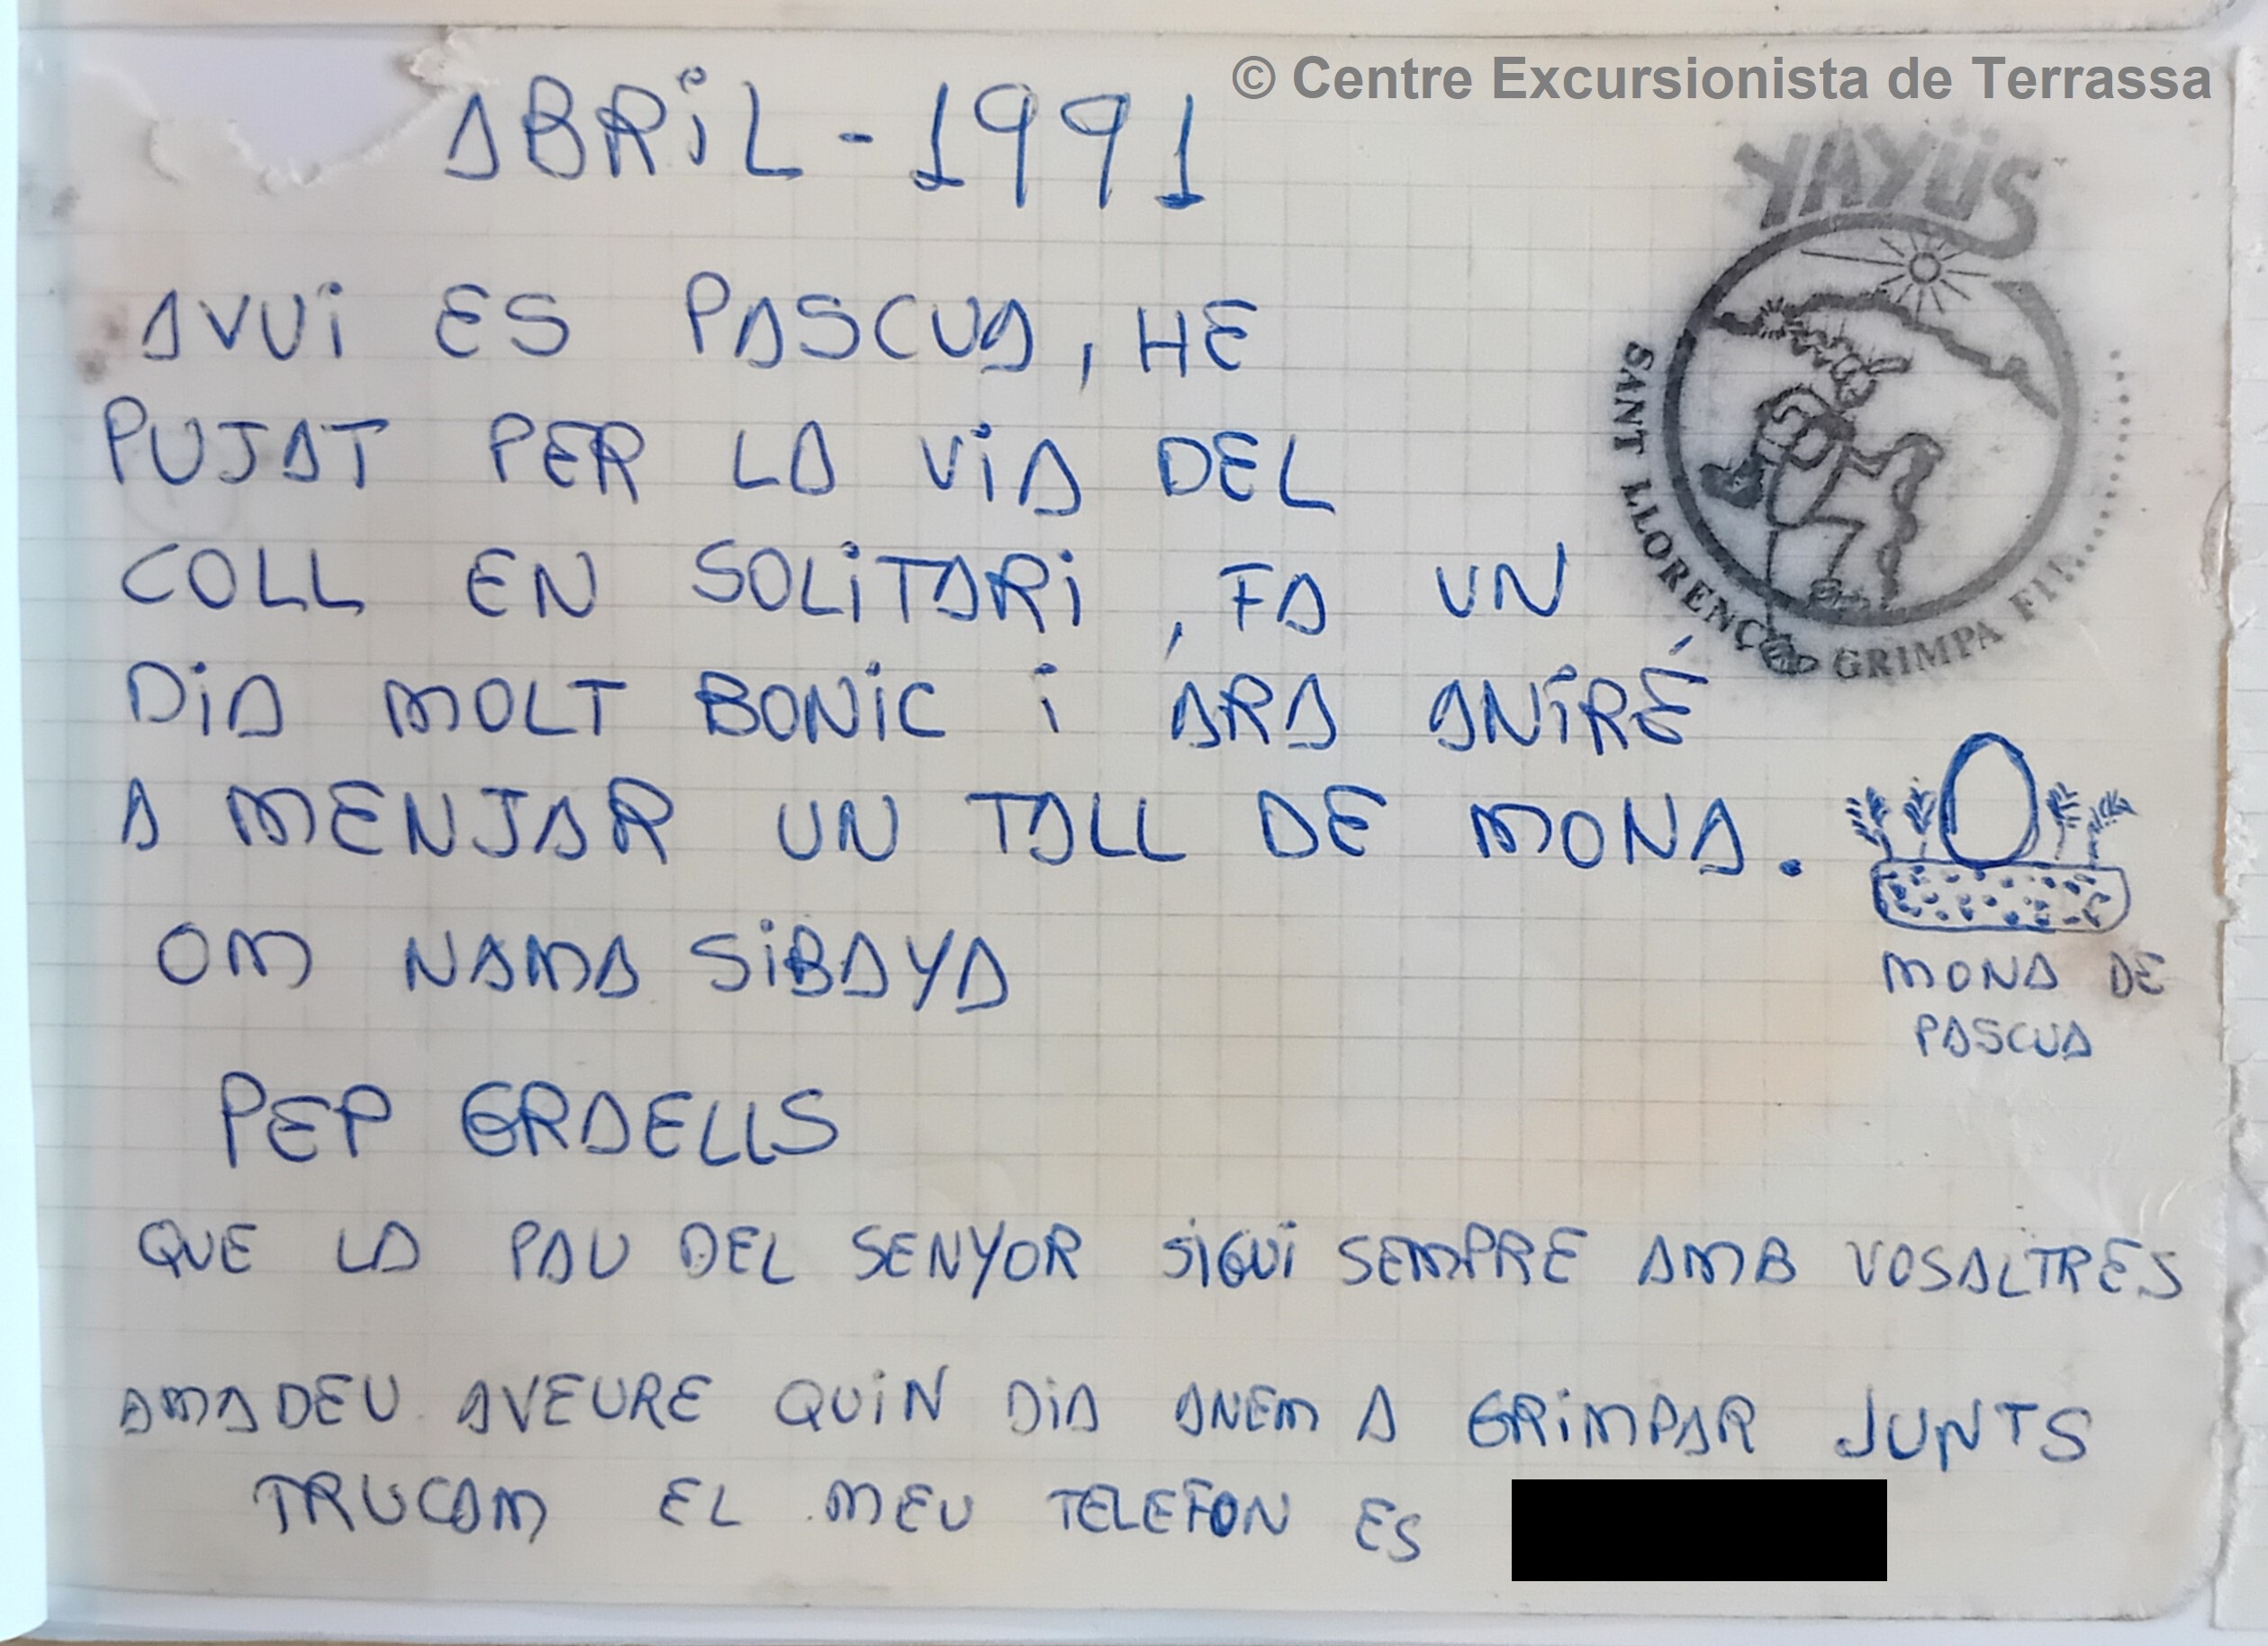 © Centre Excursionista de Terrassa
ABRiL - 1991
YAYÜS
SANT LLORENÇ GRIMPA
AVUi ES PASCUA, HE
PUJAT PER LA ViA DEL
COLL EN SOLiTARi, FA UN
DiA MOLT BONiC i ARA ANiRÉ
A MENJAR UN TALL DE MONA.
OM NAMA SiBAYA
MONA DE
PASCUA
PEP GRAELLS
QUE LA PAU DEL SENYOR SiGUi SEMPRE AMB VOSALTRES
AMADEU AVEURE QUiN DiA ANEM A GRiMPAR JUNTS
TRUCAM EL MEU TELEFON ES